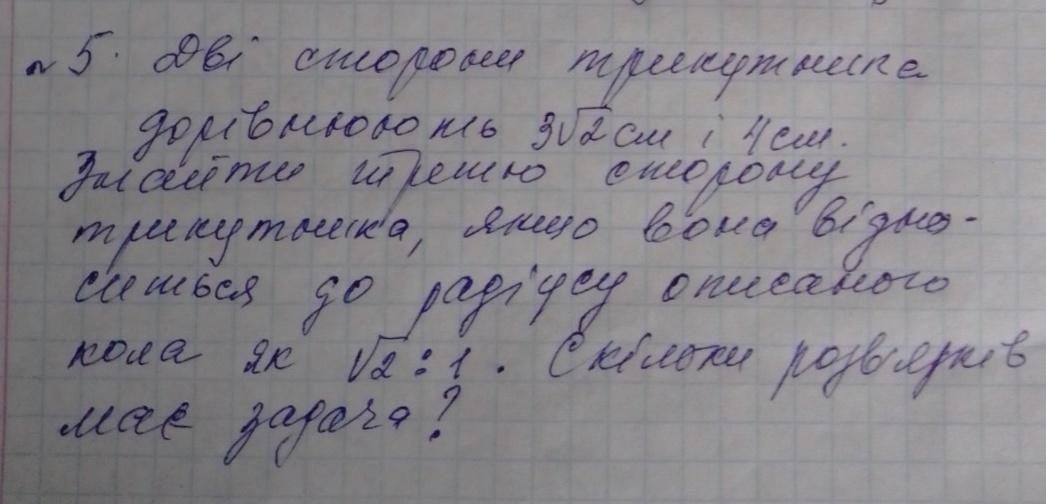 №5. Дві сторони трикутника
дорівнюють 3√2 см і 4 см.
Знайти третю сторону
трикутника, якщо вона відно-
ситься до радіусу описаного
кола як √2 : 1. Скільки розв'язків
має задача?